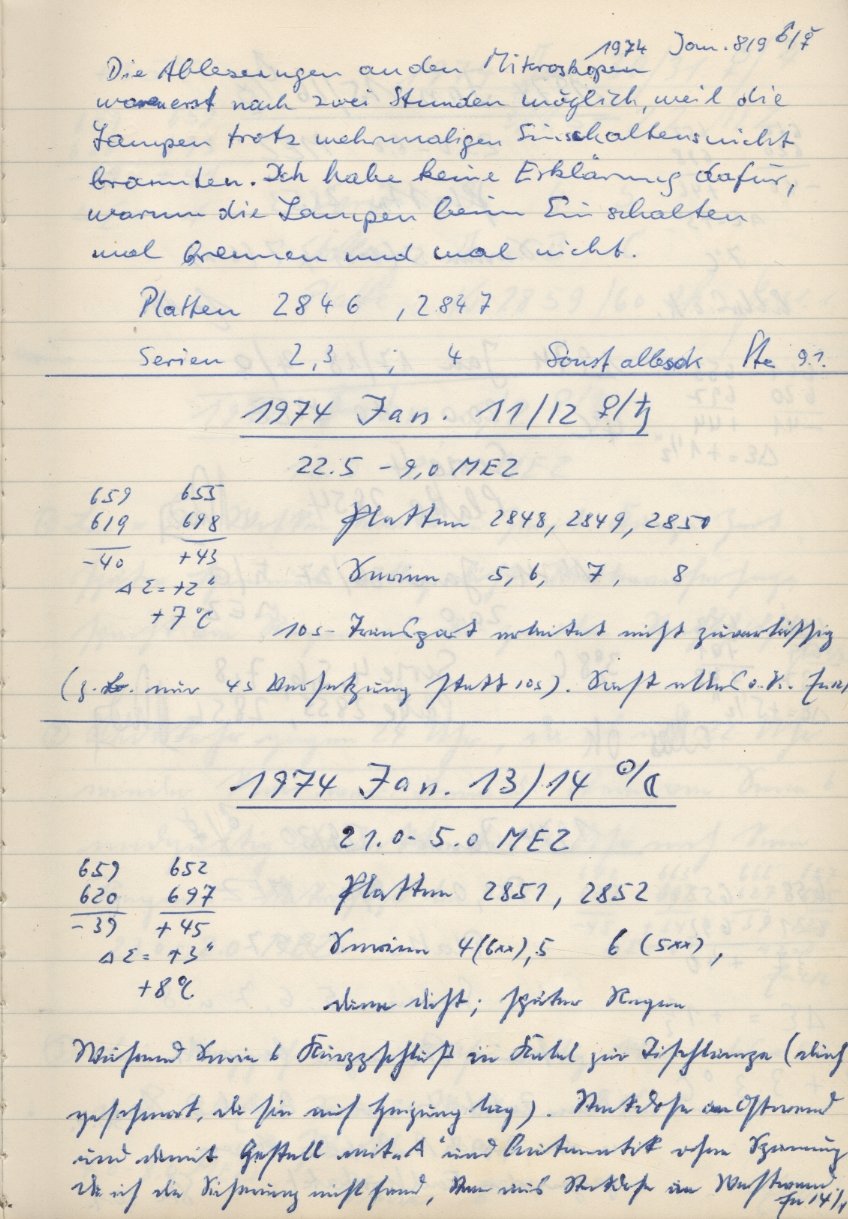 1974 Jan. 8/9 ♂/☿
Die Ablesungen an den Mikroskopen
waren erst nach zwei Stunden möglich, weil die
Lampen trotz mehrmaligen Einschaltens nicht
brannten. Ich habe keine Erklärung dafür,
warum die Lampen beim Einschalten
mal brennen und mal nicht.
Platten 2846 , 2847
Serien 2,3 ; 4 Sonst alles ok 9.1.
1974 Jan. 11/12 ♀/♄
22.5 - 9,0 MEZ
659 655
619 698 Platten 2848, 2849, 2850
-40 +43
Serien 5, 6, 7, 8
ΔΣ = +2"
+7°C
10s-Transport arbeitet nicht zuverlässig
(z.B. nur 4s Versetzung statt 10s). Sonst alles o.k.
1974 Jan. 13/14 ☉/☾
21.0 - 5.0 MEZ
659 652
620 697 Platten 2851, 2852
-39 +45
Serien 4(6xx), 5 6 (5xx),
ΔΣ = +3"
+8°C
dann dicht; später Regen
Während Serie 6 Kurzschluß im Kabel zur Tischlampe (durch
geschmort, da sie auf Heizung lag). Steckdose an Ostwand
und damit Gestell mit "A" und Automatik ohne Spannung
Da ich die Sicherung nicht fand, aus Steckdose an Westwand
14/1